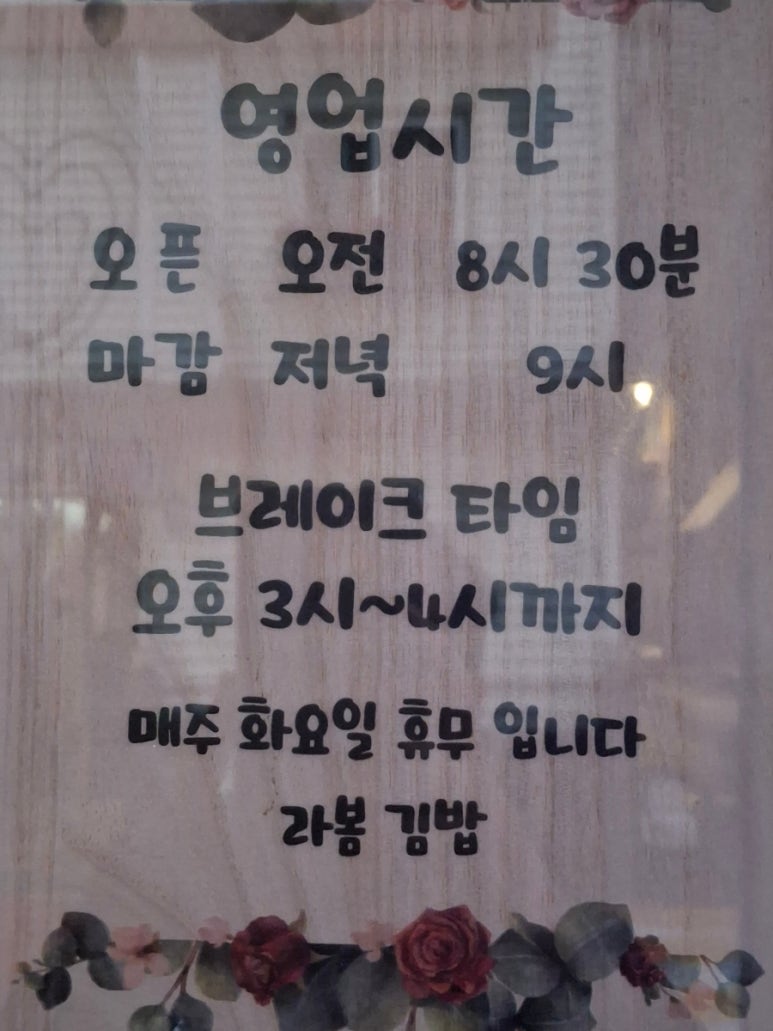 영업시간
오픈 오전 8시 30분
마감 저녁 9시
브레이크 타임
오후 3시~4시까지
매주 화요일 휴무 입니다
라봄 김밥